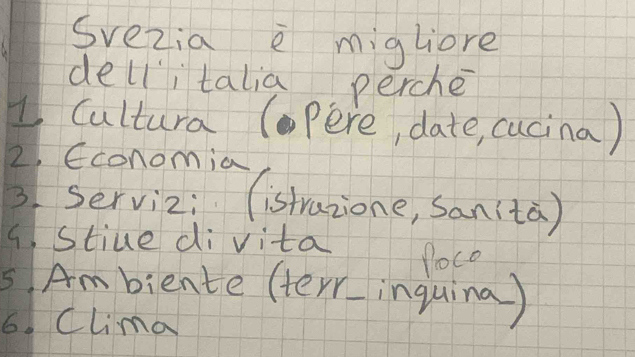 Svezia è migliore
dell'italia perchē
1. Cultura (opere, date, cucina)
2. Economia
3. Servizi (istruzione, sanità)
4. Stiue di vita
poco
5. Ambiente (terr_ inquina_)
6. Clima